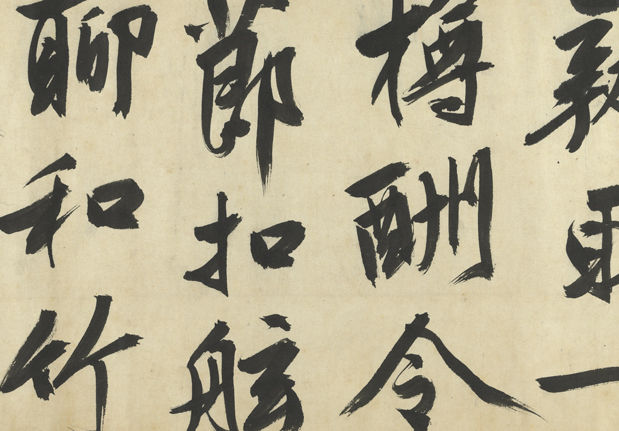 一
樽酬令
節扣舷
聊和竹